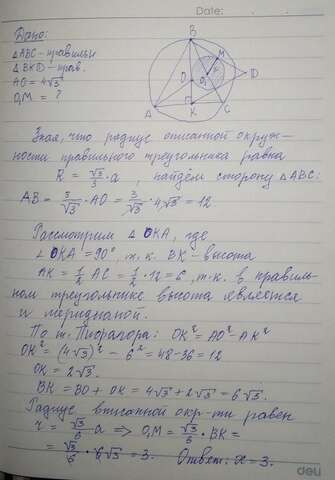 Date:
Дано:
△ABC - правильн
△BKD - прав.
AO = 4√3
O₁M = ?
B
M
D
O
O₁
x
A
K
C
Зная, что радиус описанной окруж-
ности правильного треугольника равна
R = √3/3 · a, найдём сторону △ABC:
AB = 3/√3 · AO = 3/√3 · 4√3 = 12
Рассмотрим △ OKA, где
∠ OKA = 90°, т.к. BK - высота
AK = 1/2 AC = 1/2 · 12 = 6, т.к. в правиль-
ном треугольнике высота является
и медианой.
По т. Пифагора: OK² = AO² - AK²
OK² = (4√3)² - 6² = 48 - 36 = 12
OK = 2√3.
BK = BO + OK = 4√3 + 2√3 = 6√3.
Радиус вписанной окр-ти равен
r = √3/6 a ⇒ O₁M = √3/6 · BK =
= √3/6 · 6√3 = 3. Ответ: x = 3.
deli